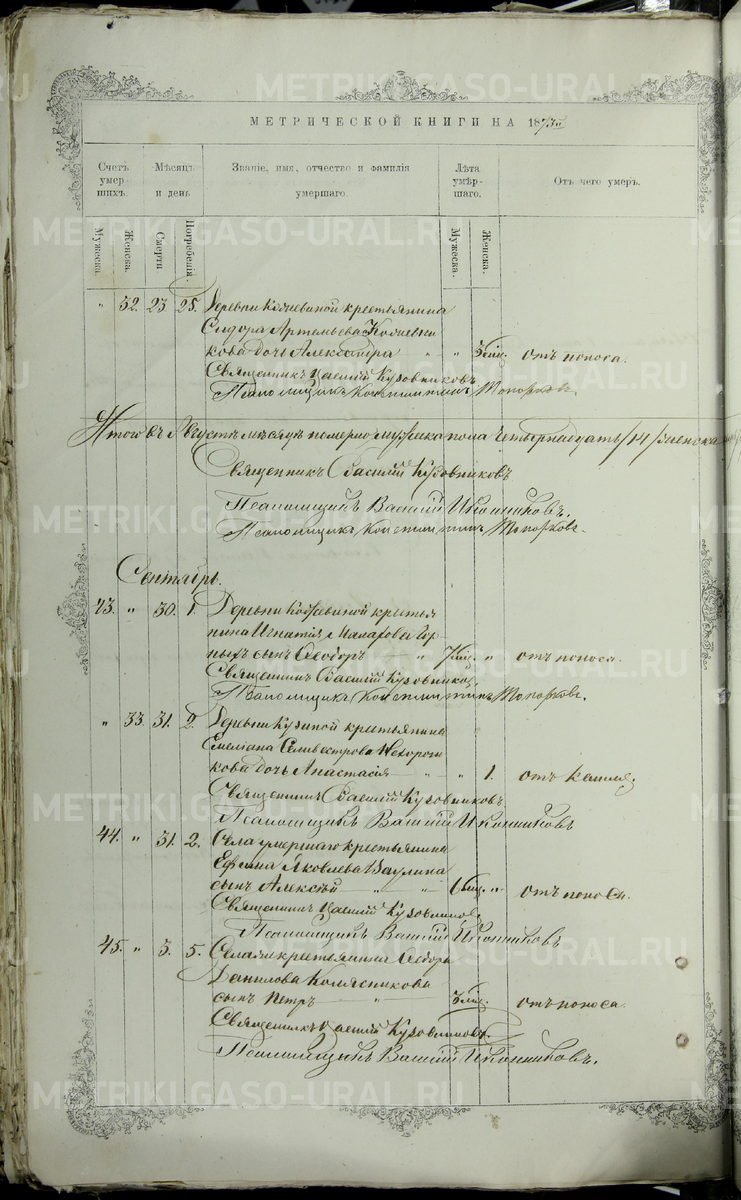 МЕТРИЧЕСКОЙ КНИГИ НА 1873й
Счетъ умер- шихъ.
Мѣсяцъ и день
Званіе, имя, отчество и фамилія умершаго.
Лѣта умер- шаго.
Отъ чего умеръ.
Мужеска.
Женска.
Смерти
Погребенія.
Мужеска.
Женска.
" 32. 23 25. Деревни крестьянина
Сидора Артемьева
кова дочь Александра " " 3 мѣс. отъ поноса.
Священникъ Василій Кузовниковъ
Псаломщикъ Константинъ Топорковъ.
Итого въ Августѣ мѣсяцѣ померло мужеска пола четырнадцать /14/ женска
Священникъ Василій Кузовниковъ
Псаломщикъ Василій Иконниковъ.
Псаломщикъ Константинъ Топорковъ.
Сентябрь.
43. " 30. 1. Деревни крестья
нина Игнатія Малахова
ныхъ сынъ Ѳеодоръ 7 мѣс. " отъ поноса.
Священникъ Василій Кузовниковъ.
Псаломщикъ Константинъ Топорковъ.
" 33. 31. 2. Деревни крестьянина
Емеліана Селивестрова
кова дочь Анастасія " " 1. отъ кашля
Священникъ Василій Кузовниковъ
Псаломщикъ Василій Иконниковъ
44. " 31. 2. Села умершаго крестьянина
Ефима Яковлева Ваулина
сынъ Алексѣй " " 6 мѣс. " отъ поноса.
Священникъ Василій Кузовниковъ
Псаломщикъ Василій Иконниковъ
45. " 3. 5. Села крестьянина Ѳедора
Данилова Колясникова
сынъ Петръ " 3 мѣс. отъ поноса.
Священникъ Василій Кузовниковъ.
Псаломщикъ Василій Иконниковъ.
METRIKI.GASO-URAL.RU